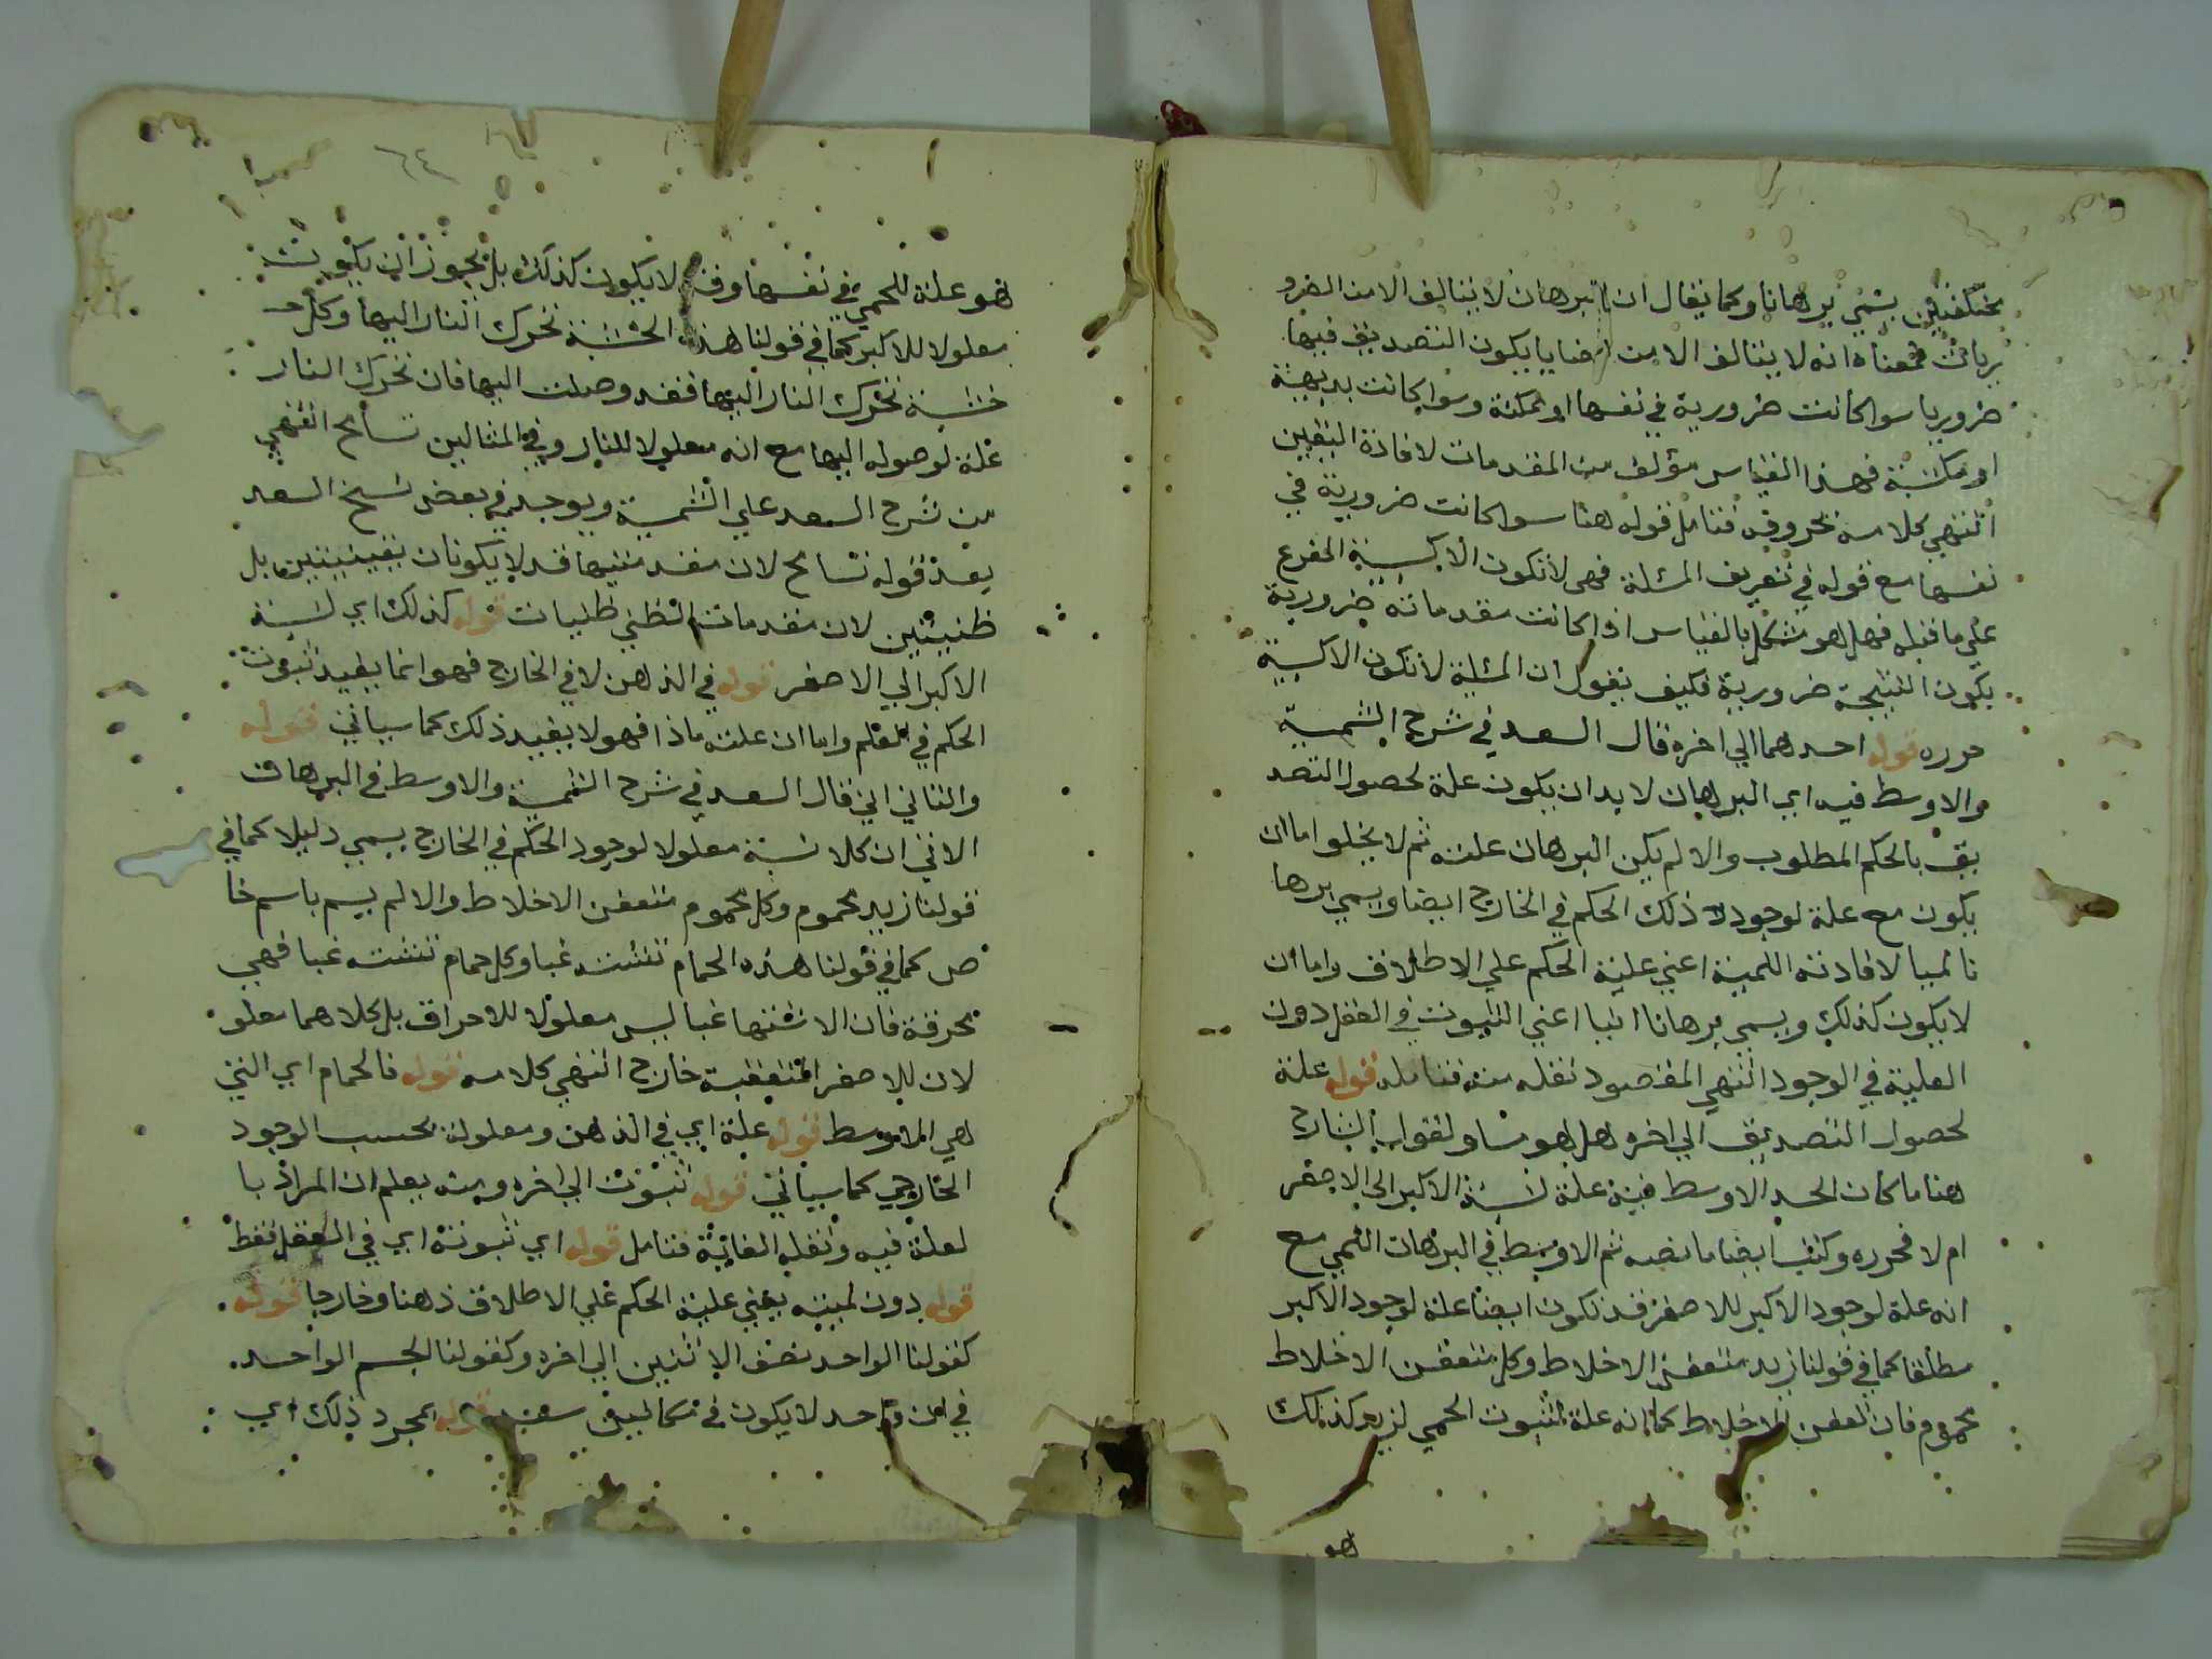 مختلفين يسمي برهانا وكما يقال ان البرهان لا يتالف الا من الضرو
ريات فمعناه انه لا يتالف الا من قضايا يكون التصديق فيها
ضروريا سوا كانت ضرورية في نفسها او ممكنة وسوا كانت بديهية
او مكتسبة فهذا القياس مؤلف من المقدمات لافادة اليقين
انتهي كلامه بحروفه فتامل قوله هنا سوا كانت ضرورية في
نفسها مع قوله في تعريف المسئلة فهي لا تكون الا كسبية المفرع
علي ما قبله فهل هو مشكل بالقياس اذا كانت مقدماته ضرورية
يكون النتيجة ضرورية فكيف يقول ان المسئلة لا تكون الا كسبية
حرره قوله احدهما الي اخره قال السعد في شرح الشمسية
والاوسط فيه اي البرهان لا بد ان يكون علة لحصول التصد
يق بالحكم المطلوب والا لم يكن البرهان علته ثم لا يخلوا اما ان
يكون مع علة لوجود ذلك الحكم في الخارج ايضا ويسمي برها
نا لميا لافادته اللمية اعني علية الحكم علي الاطلاق واما ان
لا يكون كذلك ويسمي برهانا انيا اعني الثبوت في العقل دون
العلية في الوجود انتهي المقصود نقله منه فتامله قوله علة
لحصول التصديق الي اخره هل هو مساو لقول الشارح
هنا ما كان الحد الاوسط فيه علة لنسبة الاكبر الي الاصغر
ام لا فحرره وكتب ايضا ما نصه ثم الاوسط في البرهان اللمي مع
انه علة لوجود الاكبر للاصغر قد تكون ايضا علة لوجود الاكبر
مطلقا كما في قولنا زيد متعفن الاخلاط وكل متعفن الاخلاط
محموم فان تعفن الاخلاط كما انه علة لثبوت الحمي لزيد كذلك
هو
٦٤
هو علة للحمي في نفسها وقد لا يكون كذلك بل يجوز ان يكون
معلولا للاكبر كما في قولنا هذه الخشبة تحرك النار اليها وكل
خشبة تحرك النار اليها فقد وصلت اليها فان تحرك النار
علة لوصوله اليها مع انه معلولا للنار وفي المثالين تسامح انتهي
من شرح السعد علي الشمسية ويوجد في بعض نسخ السعد
بعد قوله تسامح لان مقدمتيها قد لا يكونان يقينيتين بل
ظنيتين لان مقدمات الظني ظنيات قوله كذلك اي لنسبة
الاكبر الي الاصغر قوله في الذهن لا في الخارج فهو انما يفيد ثبوت
الحكم في العلم واما ان علته ماذا فهو لا يفيد ذلك كما سياتي قوله
والثاني اني قال السعد في شرح الشمسية والاوسط في البرهان
الاني ان كلا نسبة معلولا لوجود الحكم في الخارج يسمي دليلا كما في
قولنا زيد محموم وكل محموم متعفن الاخلاط والا لم يسم باسم خا
ص كما في قولنا هذه الحمام تشتد غبا وكل حمام تشتد غبا فهي
محرقة فان الاشتدها غبا ليس معلولا للاحراق بل كلاهما معلو
لان للاصفر المتعفنة خارج انتهي كلامه قوله فالحمام اي التي
هي الاوسط قوله علة اي في الذهن ومعلولة بحسب الوجود
الخارجي كما سياتي قوله ثبوت الي اخره ومنه يعلم ان المراد با
لعلة فيه ونقله الغاية فتامل قوله اي ثبوته اي في العقل فقط
قوله دون لميته يعني علية الحكم علي الاطلاق ذهنا وخارجا قوله
كقولنا الواحد نصف الاثنين الي اخره وكقولنا الجسم الواحد
في ان واحد لا يكون في مكانين قوله بمجرد ذلك اي